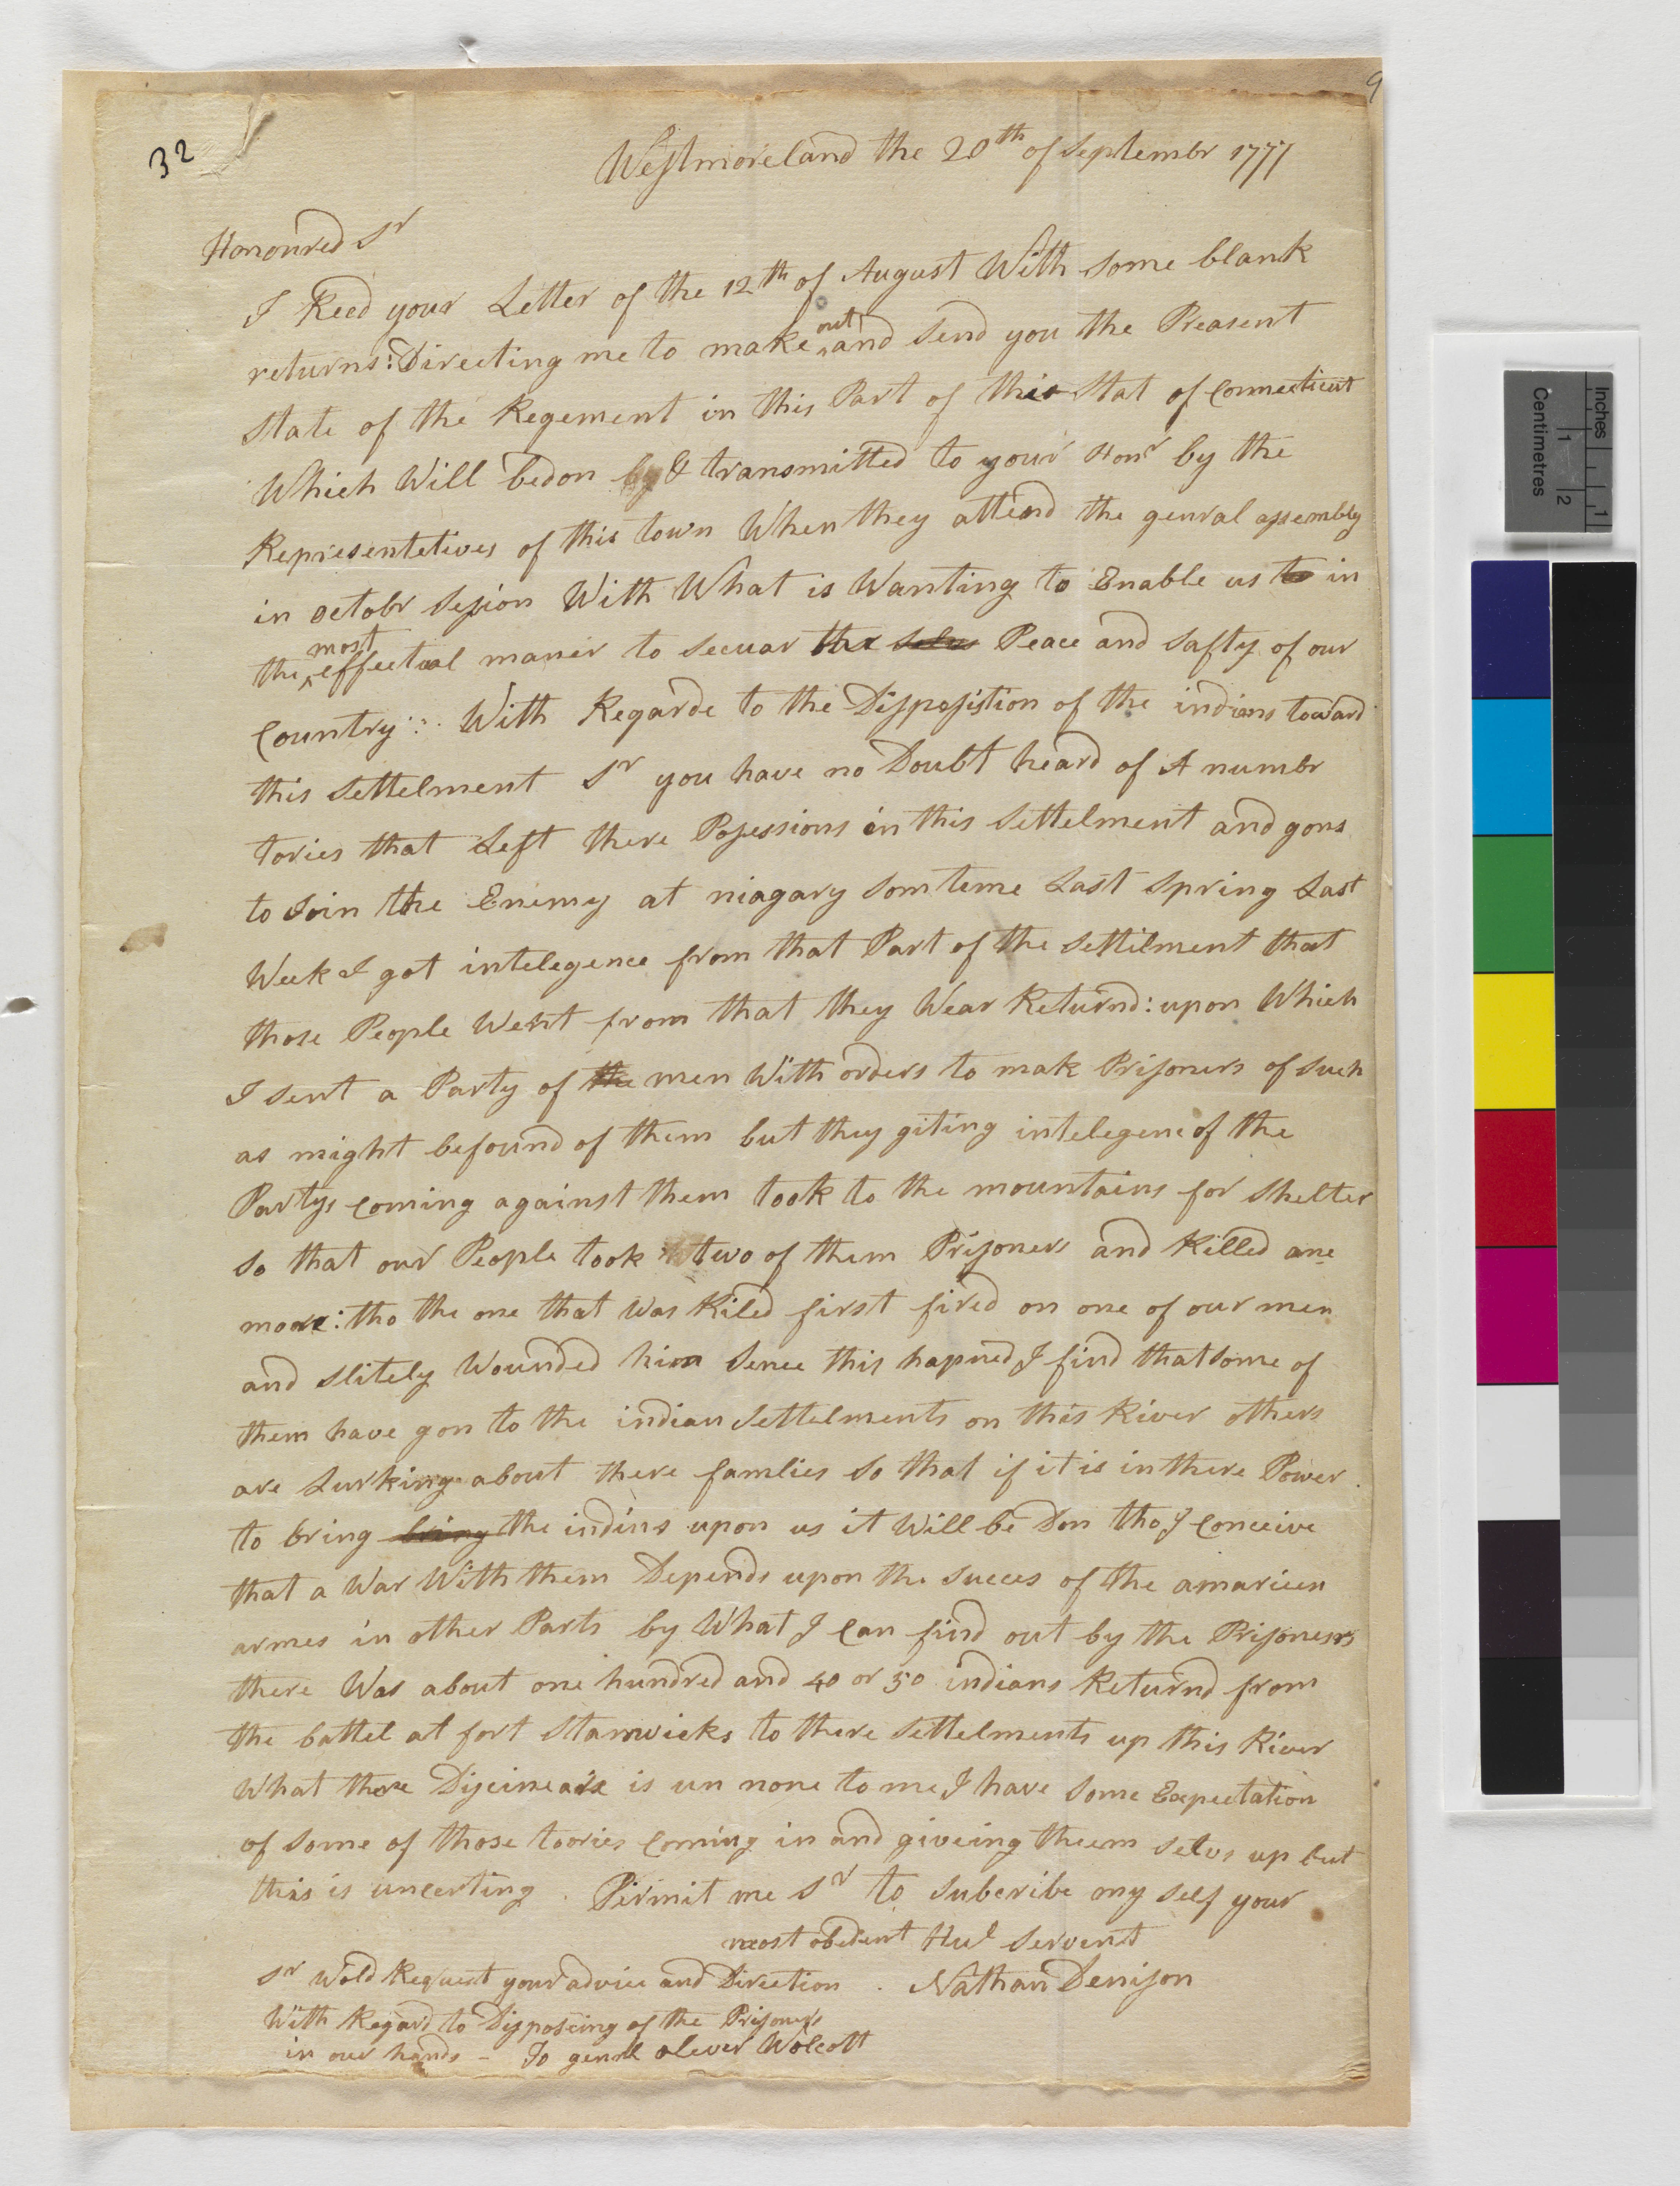 9
32
Westmoreland the 20th of Septembr 1777
Honoured Sr
I Recd your Letter of the 12th of August With Some blank
returns: Directing me to make out and Send you the Preasent
State of the Regement in this Part of this Stat of Connecticut
Which Will bedon by & transmitted to your Honr by the
Representetives of this town When they attend the genral assembly
in octobr Session With What is Wanting to Enable us to in
the most effectual maner to Secuar the Selves Peace and Safty of our
Country: With Regarde to the Dispossistion of the indians toward
this Settelment Sr you have no Doubt heard of A numbr
tories that Left there Posessions in this Settelment and gons
to Join the Enemy at niagary Somteme Last Spring Last
Week I got intelegence from that Part of the Settilment that
those People Went from that they Wear Returnd: upon Which
I Sent a Party of the men With orders to mak Prisoners of Such
as might befound of them but they giting intelegene of the
Partys Coming against them took to the mountains for Shelter
So that our People took two of them Prisoners and Killed one
more: tho the one that Was Kiled first fired on one of our men
and Slitely Wounded him Sence this hapned I find that Some of
them have gon to the indian Settelments on this River others
are Lurking about there famlies So that if it is in there Power
to bring bring the indins upon us it Will be Don tho I Conceive
that a War With them Depends upon the Succes of the amaricen
armes in other Parts by What I Can find out by the Prisoners
there Was about one hundred and 40 or 50 indians Returnd from
the battel at fort Stanwicks to there Settelments up this River
What there is un none to me I have Some Expectation
of Some of those toories Coming in and giveing theem Selvs up but
this is uncerting. Permit me Sr to Subcribe my Self your
most obedient Hul Servent
Nathan Denison
Sr Wold Request your advice and Direction
With Regard to Disposeing of the Prisoners
in our hands - To genrll olever Wolcott
Inches
1
Centimetres
1
2